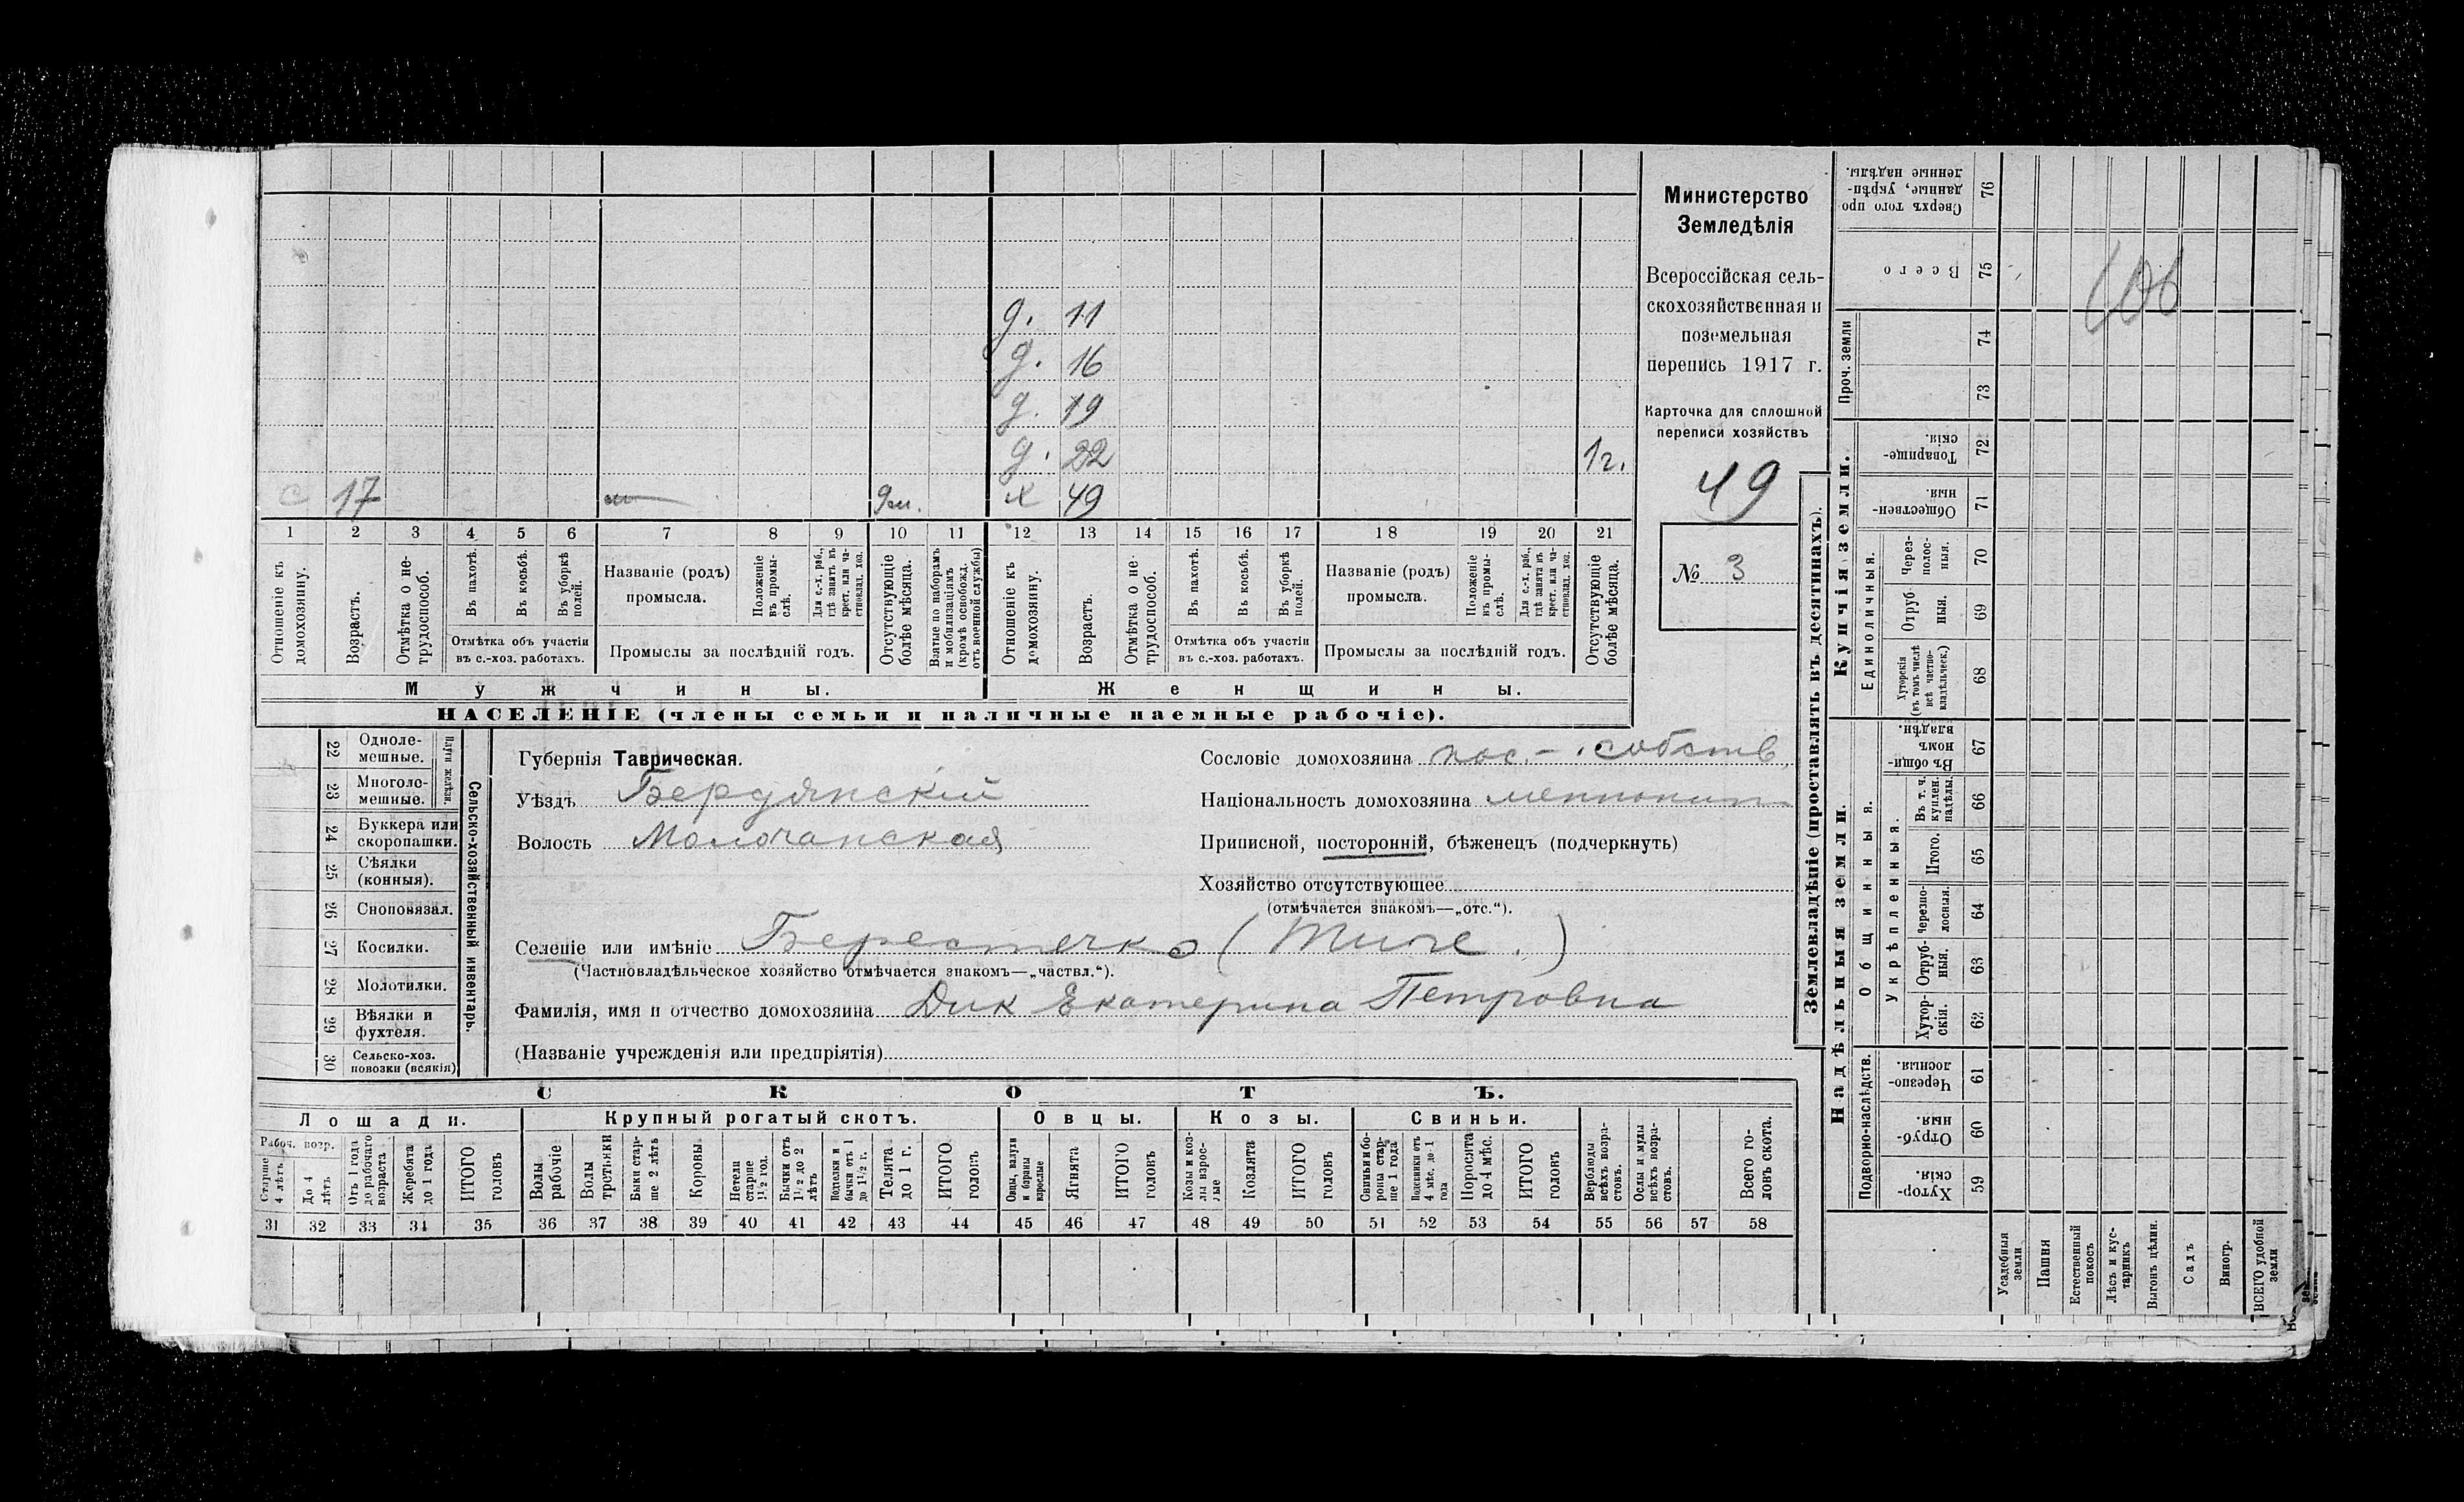 д. 11
д. 16
д. 19
д. 22 1г.
с 17 9м. х 49
1 2 3 4 5 6 7 8 9 10 11 12 13 14 15 16 17 18 19 20 21
Отношеніе къ домохозяину.
Возрастъ.
Отмѣтка о не-трудоспособ.
Въ пахотѣ.
Въ косьбѣ.
Въ уборкѣ полей.
Отмѣтка объ участіи
въ с.-хоз. работахъ.
Названіе (родъ)
промысла.
Положеніе въ промы-слѣ.
Для с.-х. раб., гдѣ занятъ въ крест. или ча-стновлад. хоз.
Промыслы за послѣдній годъ.
Отсутствующіе болѣе мѣсяца.
Взятые по наборамъ и мобилизаціямъ (кромѣ освобожд. отъ военной службы)
Отношеніе къ домохозяину.
Возрастъ.
Отмѣтка о не-трудоспособ.
Въ пахотѣ.
Въ косьбѣ.
Въ уборкѣ полей.
Отмѣтка объ участіи
въ с.-хоз. работахъ.
Названіе (родъ)
промысла.
Положеніе въ промы-слѣ.
Для с.-х. раб., гдѣ занята въ крест. или ча-стновлад. хоз.
Промыслы за послѣдній годъ.
Отсутствующіе болѣе мѣсяца.
Мужчины.
Женщины.
НАСЕЛЕНІЕ (члены семьи и наличные наемные рабочіе).
Министерство
Земледѣлія
Всероссійская сель-
скохозяйственная и
поземельная
перепись 1917 г.
Карточка для сплошной
переписи хозяйствъ
49
№ 3
22 Одноле-мешные.
23 Многоле-мешные.
Плуги желѣзн.
24 Буккера или скоропашки.
25 Сѣялки (конныя).
26 Сноповязал.
27 Косилки.
28 Молотилки.
29 Вѣялки и фухтеля.
30 Сельско-хоз. повозки (всякія)
Сельско-хозяйственный инвентарь.
Губернія Таврическая.
Уѣздъ Бердянскій
Волость Молочанская
Сословіе домохозяина пос.- собств.
Національность домохозяина меннонит
Приписной, посторонній, бѣженецъ (подчеркнуть)
Хозяйство отсутствующее
(отмѣчается знакомъ—„отс.“).
Селеніе или имѣніе Берестечко (Тиге.)
(Частновладѣльческое хозяйство отмѣчается знакомъ—„частвл.“).
Фамилія, имя и отчество домохозяина Дик Екатерина Петровна
(Названіе учрежденія или предпріятія)
СКОТЪ.
Лошади.
Крупный рогатый скотъ.
Овцы.
Козы.
Свиньи.
Рабоч. возр.
Старше 4 лѣтъ
До 4 лѣтъ
Отъ 1 года до рабочаго возраста
Жеребята до 1 года
ИТОГО головъ
Волы рабочіе
Волы третьяки
Быки стар-ше 2 лѣтъ
Коровы
Нетели старше 1½ год.
Бычки отъ 1½ до 2 лѣтъ
Подтелки и бычки отъ 1 до 1½ г.
Телята до 1 г.
ИТОГО головъ
Овцы, валухи и бараны взрослые
Ягнята
ИТОГО головъ
Козы и коз-лы взрос-лые
Козлята
ИТОГО головъ
Свиньи и бо-ровы стар-ше 1 года
Подсвинки отъ 4 мѣс. до 1 года
Поросята до 4 мѣс.
ИТОГО головъ
Верблюды всѣхъ возра-стовъ.
Ослы и мулы всѣхъ возра-стовъ.
Всего го-ловъ скота.
31 32 33 34 35 36 37 38 39 40 41 42 43 44 45 46 47 48 49 50 51 52 53 54 55 56 57 58
Землевладѣніе (проставлять въ десятинахъ).
Сверхъ того про-данные, укрѣп-ленные надѣлы. 76
Всего 75
106
Проч. земли 74
73
Купчія земли.
Товарище-скія. 72
Обществен-ныя. 71
Единоличныя.
Через-полос-ныя. 70
Отруб-ныя. 69
Хуторскія (въ томъ числѣ всѣ частно-владѣльческ.) 68
Надѣльныя земли.
Общинныя.
Въ общин-номъ владѣн. 67
Укрѣпленныя.
Въ т. ч. куплен. надѣлы. 66
Итого. 65
Черезпо-лосныя. 64
Отруб-ныя. 63
Хутор-скія. 62
Подворно-наслѣдств.
Черезпо-лосныя. 61
Отруб-ныя. 60
Хутор-скія. 59
Усадебныя земли
Пашня
Естественный покосъ
Лѣсъ и кус-тарникъ
Выгонъ цѣлин.
Садъ
Виногр.
ВСЕГО удобной земли